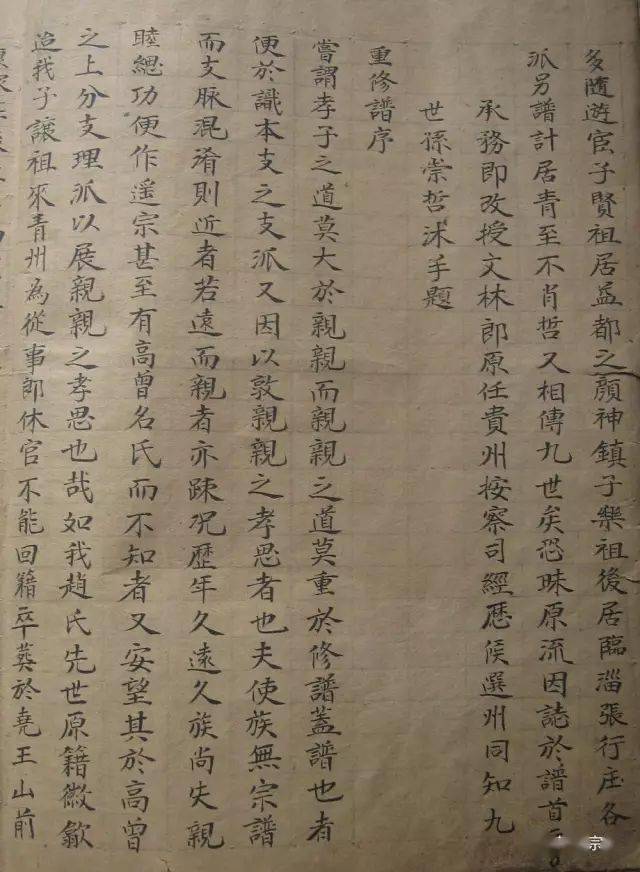 多隨遊宦子賢祖居益都之顏神鎮子樂祖後居臨淄張行庄各
派另譜計居青至不肖哲又相傳九世矣恐昧原流因誌於譜首
承務郎改授文林郎原任貴州按察司經歷候選州同知九
世孫崇哲沐手題
重修譜序
嘗謂孝子之道莫大於親親而親親之道莫重於修譜蓋譜也者
便於識本支之支派又因以敦親親之孝思者也夫使族無宗譜
而支脉混淆則近者若遠而親者亦疎况歷年久遠久族尚失親
睦緦功便作遥宗甚至有高曾名氏而不知者又安望其於高曾
之上分支理派以展親親之孝思也哉如我趙氏先世原籍徽歙
迨我子讓祖來青州為從事郎休官不能回籍卒葬於堯王山前
宗